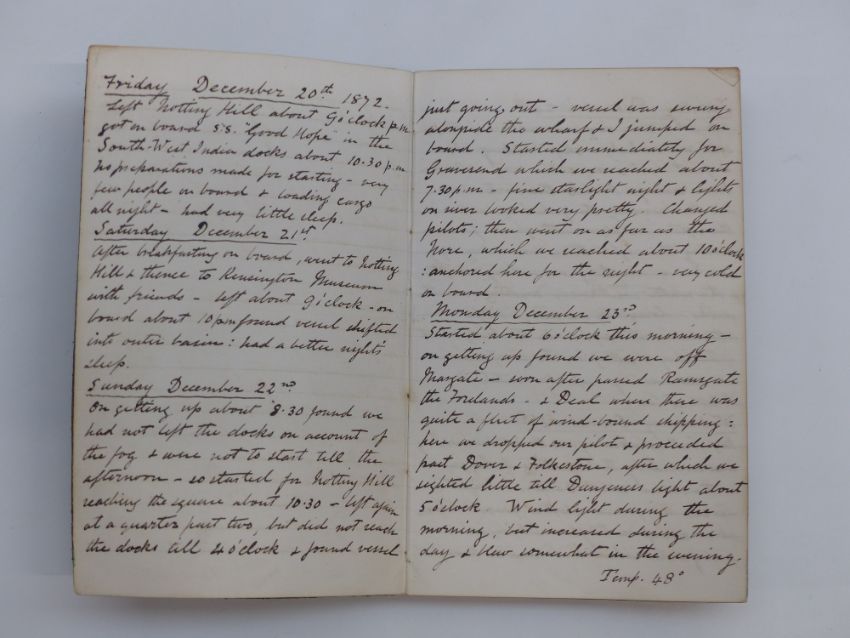 Friday December 20th 1872.
Left Notting Hill about 9 o'clock p.m
got on board S.S. "Good Hope" in the
South-West India docks about 10.30 p.m
no preparations made for starting - very
few people on board & loading cargo
all night - had very little sleep.
Saturday December 21st.
After breakfasting on board, went to Notting
Hill & thence to Kensington Museum
with friends - left about 9 o'clock - on
board about 10 pm found vessel shifted
into outer basin: had a better nights
sleep.
Sunday December 22nd
On getting up about 8.30 found we
had not left the docks on account of
the fog & were not to start till the
afternoon - so started for Notting Hill
reaching the square about 10.30 - left again
at a quarter past two, but did not reach
the docks till 4 o'clock & found vessel
just going out - vessel was swung
alongside the wharf & I jumped on
board. Started immediately for
Gravesend which we reached about
7.30 p.m - fine starlight night & lights
on river looked very pretty. Changed
pilots; then went on as far as the
Nore, which we reached about 10 o'clock
: anchored here for the night - very cold
on board.
Monday December 23rd
Started about 6 o'clock this morning -
on getting up found we were off
Margate - soon after passed Ramsgate
the Forelands - & Deal where there was
quite a fleet of wind-bound shipping:
here we dropped our pilot & proceeded
past Dover & Folkestone, after which we
sighted little till Dungeness light about
5 o'clock. Wind light during the
morning, but increased during the
day & blew somewhat in the evening.
Temp. 48°